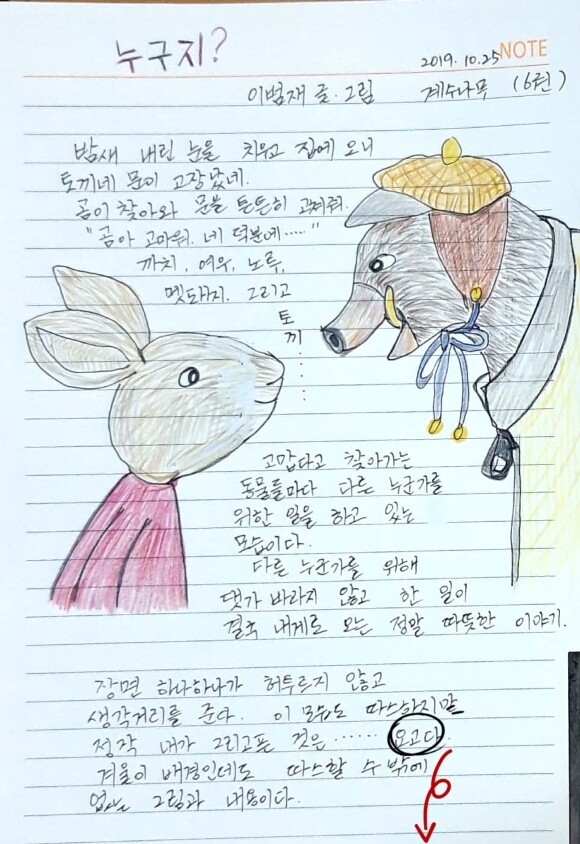 누구지?
2019.10.25 NOTE
이범재 글.그림 계수나무 (6권)
밤새 내린 눈을 치우고 집에 오니
토끼네 문이 고장났네.
곰이 찾아와 문을 튼튼히 고쳐줘.
"곰아 고마워. 네 덕분에....."
까치, 여우, 노루,
멧돼지. 그리고
토
끼
......
고맙다고 찾아가는
동물들마다 다른 누군가를
위한 일을 하고 있는
모습이다.
다른 누군가를 위해
댓가 바라지 않고 한 일이
결국 내게로 오는 정말 따뜻한 이야기.
장면 하나하나가 허투르지 않고
생각거리를 준다. 이 모습도 따스하지만
정작 내가 그리고픈 것은 ...... 요고다.
겨울이 배경인데도 따스할 수 밖에
없는 그림과 내용이다.